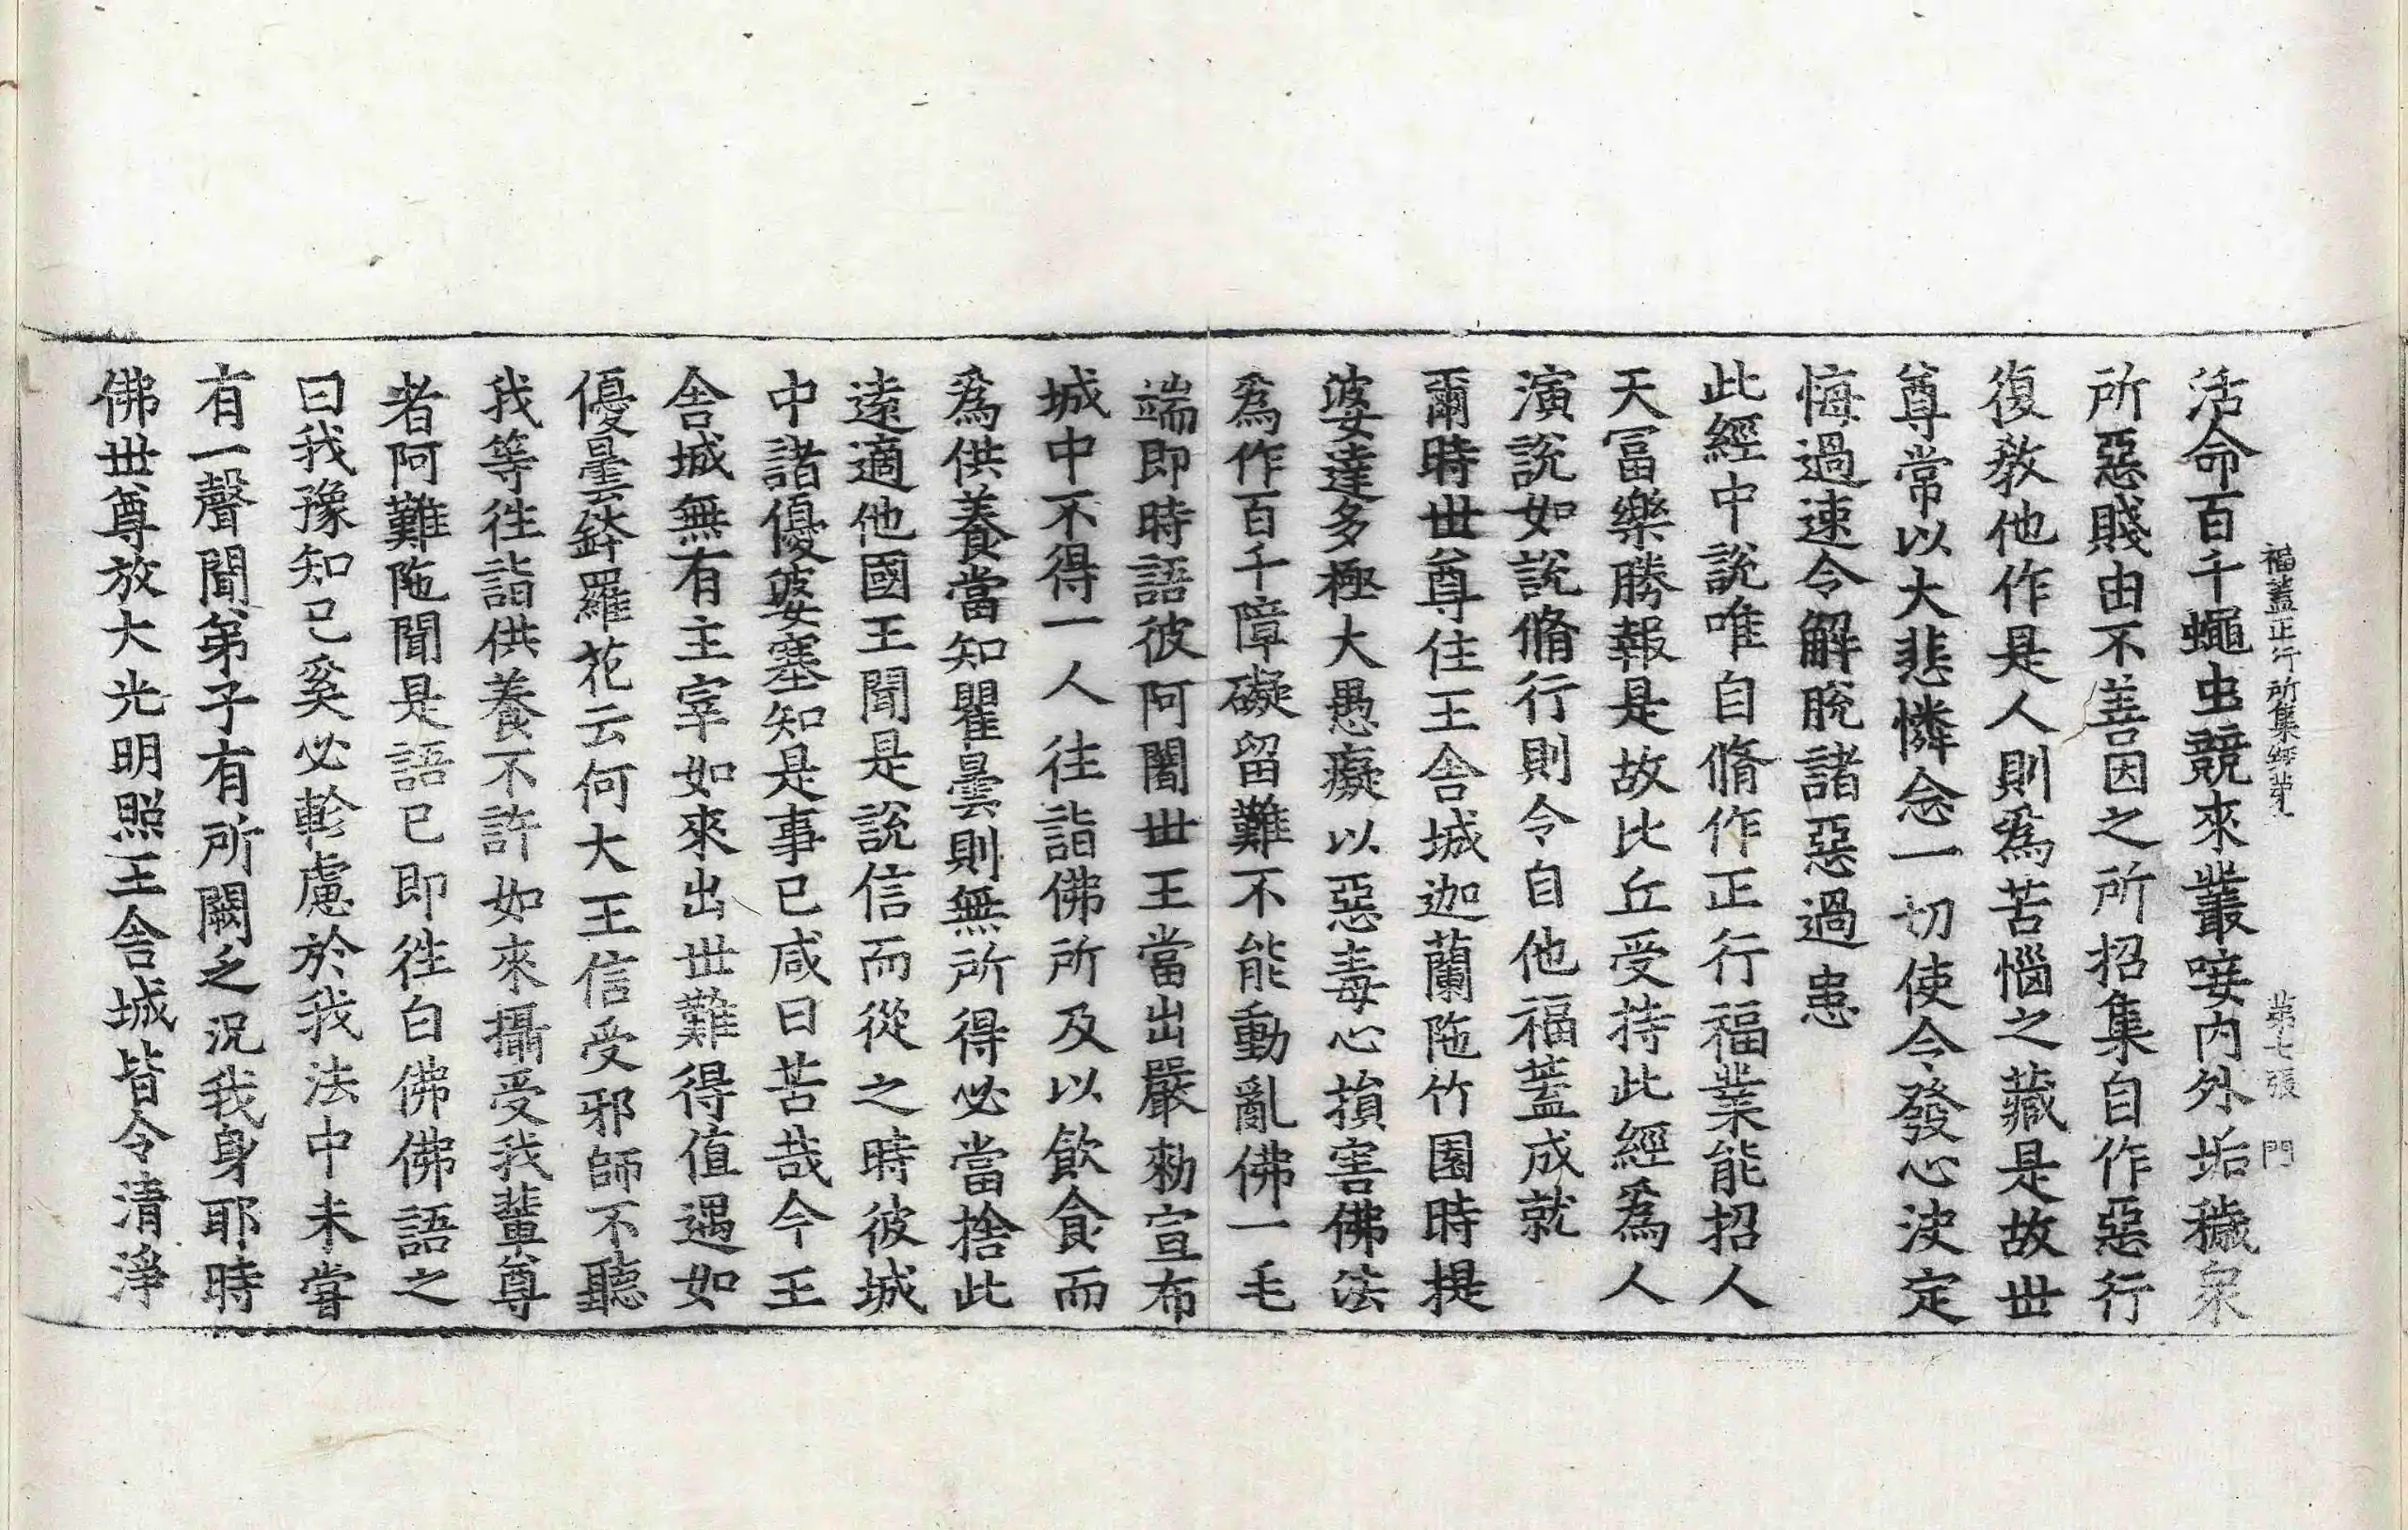 福蓋正行所集經第六 第七張 門
活命百千蠅虫競來叢唼内外垢穢衆
所惡賤由不善因之所招集自作惡行
復教他作是人則爲苦惱之藏是故世
尊常以大悲憐念一切使令發心決定
悔過速令解脫諸惡過患
此經中說唯自脩作正行福業能招人
天冨樂勝報是故比丘受持此經爲人
演說如說脩行則令自他福蓋成就
爾時世尊住王舍城迦蘭陁竹園時提
婆達多極大愚癡以惡毒心損害佛法
爲作百千障礙留難不能動亂佛一毛
端即時語彼阿闍世王當出嚴勑宣布
城中不得一人往詣佛所及以飲食而
爲供養當知瞿曇則無所得必當捨此
遠適他國王聞是說信而從之時彼城
中諸優婆塞知是事已咸曰苦哉今王
舍城無有主宰如來出世難得值遇如
優曇鉢羅花云何大王信受邪師不聽
我等往詣供養不許如來攝受我輩尊
者阿難陁聞是語已即往白佛佛語之
曰我豫知已奚必軫慮於我法中未嘗
有一聲聞弟子有所闕乏況我身耶時
佛世尊放大光明照王舍城皆令清淨